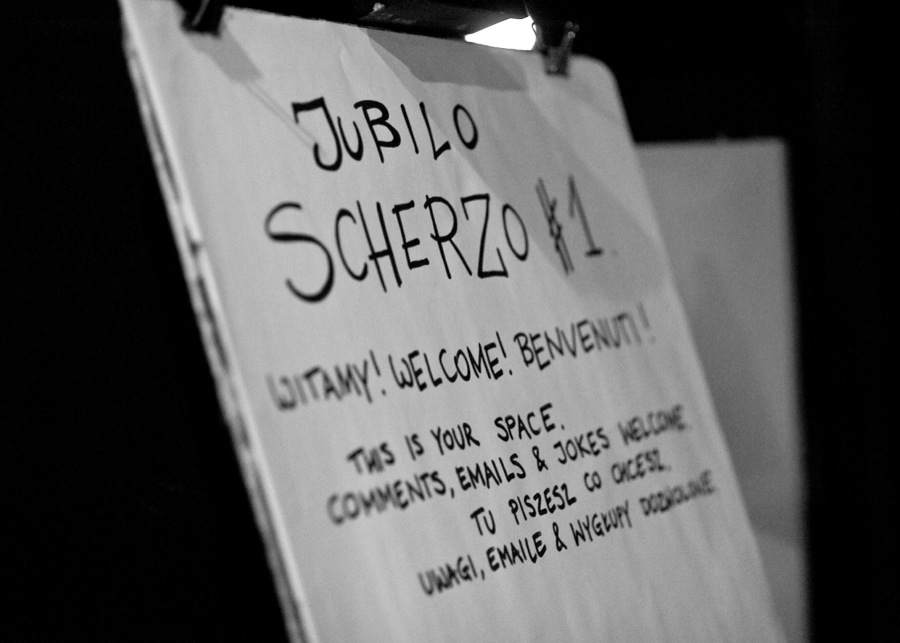 JUBILO
SCHERZO #1.
WITAMY! WELCOME! BENVENUTI!
THIS IS YOUR SPACE.
COMMENTS, EMAILS & JOKES WELCOME.
TU PISZESZ CO CHCESZ.
UWAGI, EMAILE & WYGŁUPY DOZWOLONE.